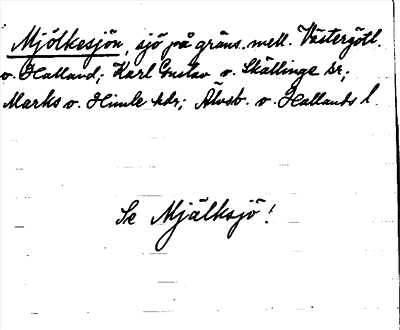 Mjölkesjön, sjö på gräns. mell. Västergötl.
o. Halland; Karl Gustav o. Skällinge sr;
Marks o. Himle hdr; Älvsb. o. Hallands l.
Se Mjälksjö!